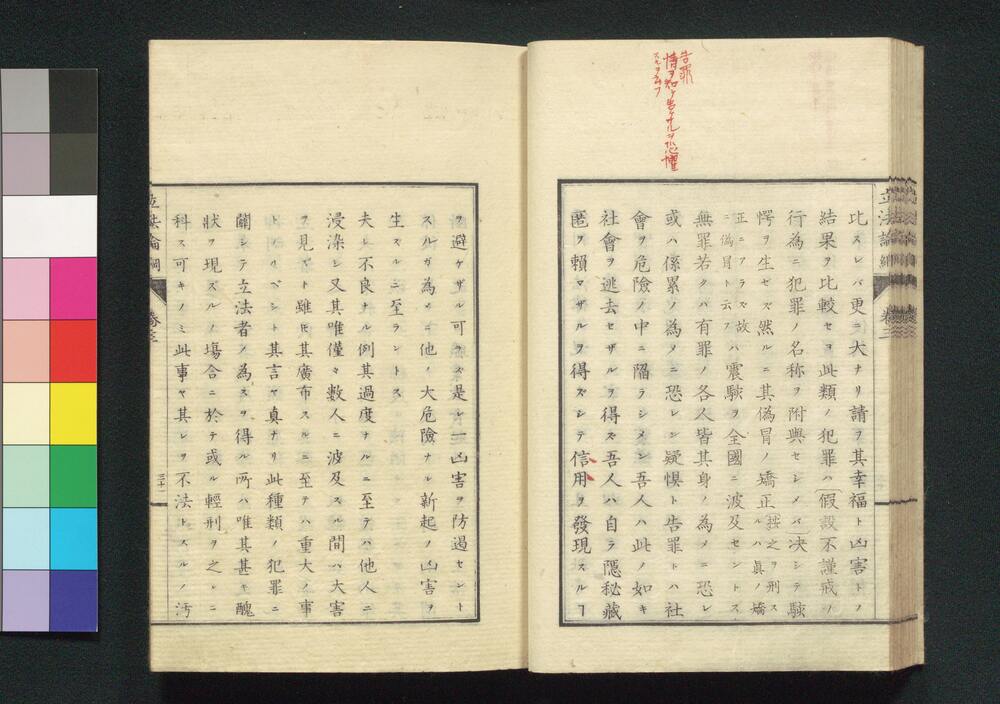 告罪
情ヲ知テ告ケサルヲ恐懼
スルヲ云フ
立法論綱 卷三
比スレバ更ニ大ナリ請ヲ其幸福ト凶害トノ
結果ヲ比較セヨ此類ノ犯罪ハ假設不謹戒ノ
行為ニ犯罪ノ名称ヲ附與セシメバ決シテ駭
愕ヲ生セズ然ルニ其偽冒ノ矯正
正ニアラズ故ハ震駭ヲ全國ニ波及セントス
無罪若クハ有罪ノ各人皆其身ノ為メニ恐レ
或ハ係累ノ為メニ恐レン疑惧ト告罪トハ社
會ヲ危險ノ中ニ陥ラシメン吾人ハ此ノ如キ
社會ヲ逃去セザルヲ得ズ吾人ハ自ラ隠秘藏
匿ヲ頼マザルヲ得ズシテ信用ヲ發現スルヿ
ヲ避ケザル可ラズ是レ一凶害ヲ防過セント
スルガ為メニ他ノ大危險ナル新起ノ凶害ヲ
生ズルニ至ラントス
夫レ不良ナル例其過度ナルニ至テハ他人ニ
浸染シ又其唯僅々數人ニ波及スル間ハ大害
ヲ見ズト雖モ其廣布スルニ至テハ重大ノ事
トナリベシト其言ヤ真ナリ此種類ノ犯罪ニ
關シテ立法者ノ為スヲ得ル所ハ唯其甚キ醜
狀ヲ現ズルノ塲合ニ於テ或ル輕刑ヲ之レニ
科ス可キノミ此事ヤ其レヲ不法トスルノ汚
立法論綱 卷三
三十一